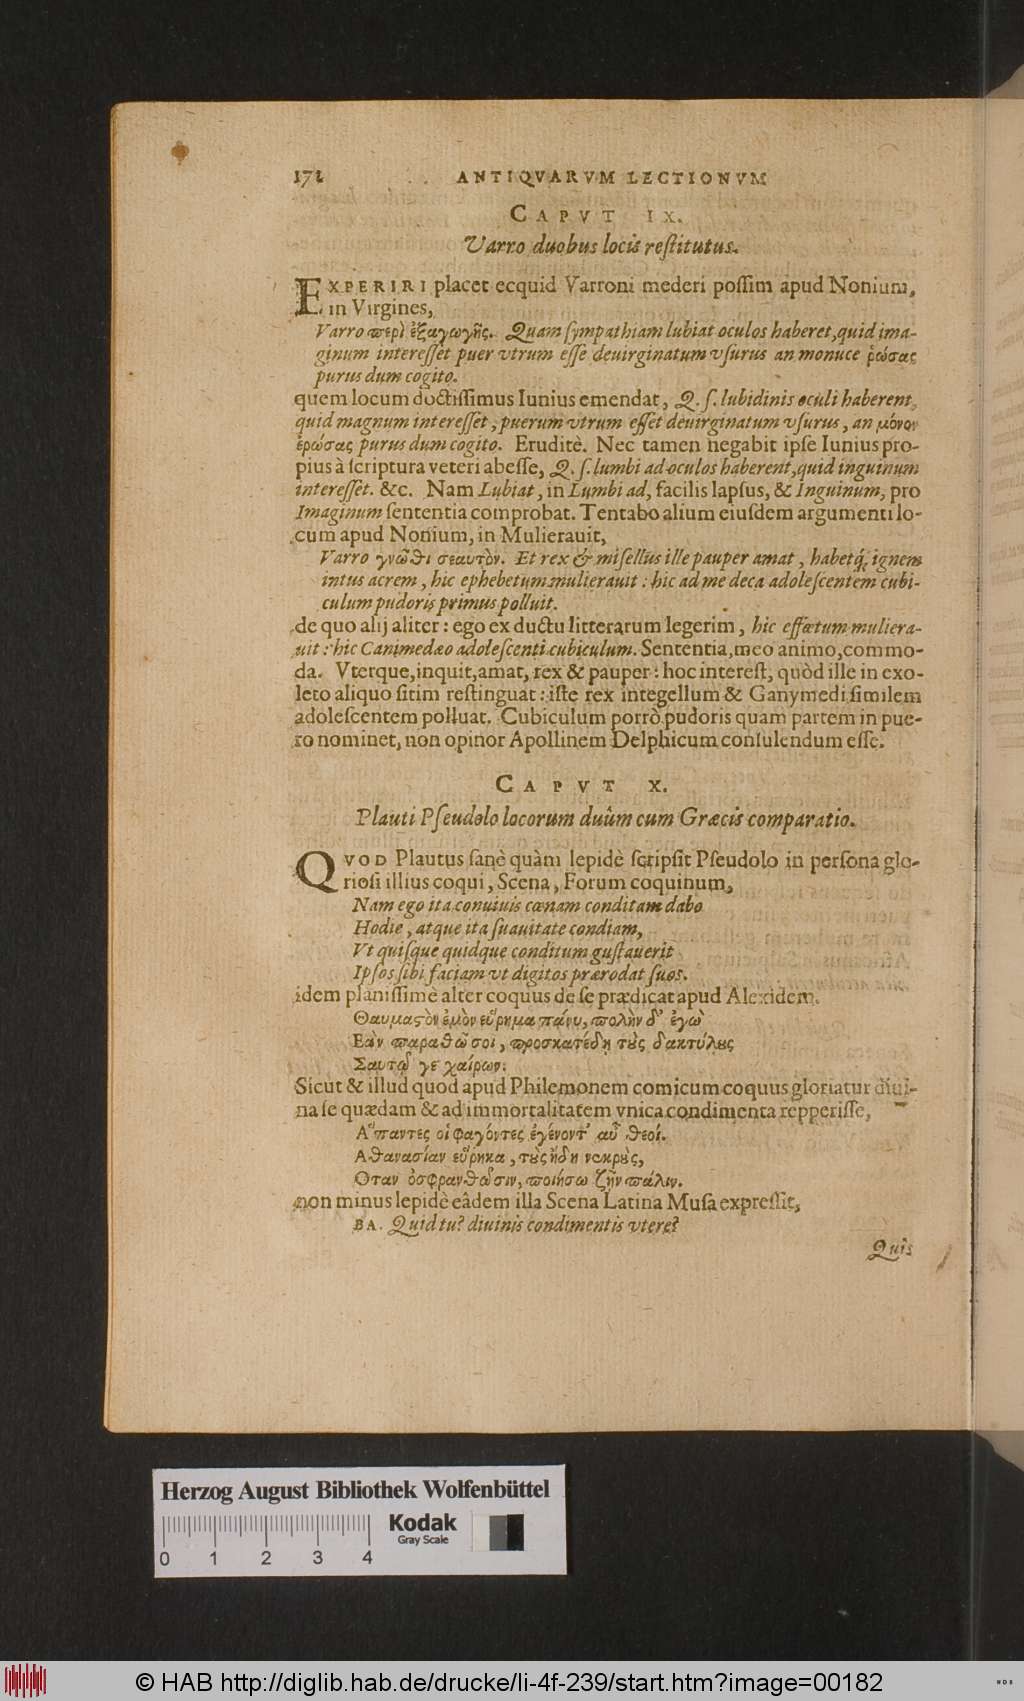 172 ANTIQVARVM LECTIONVM
CAPVT IX.
Varro duobus locis reſtitutus.
EXPERIRI placet ecquid Varroni mederi poſſim apud Nonium,
in Virgines,
Varro περὶ ἐξαγωγῆς. Quam ſympathiam lubiat oculos haberet, quid ima-
ginum intereſſet puer vtrum eſſe deuirginatum vſurus an monuce ῥώσας
purus dum cogito.
quem locum doctiſſimus Iunius emendat, Q. ſ. lubidinis oculi haberent,
quid magnum intereſſet, puerum vtrum eſſet deuirginatum vſurus, an μόνον
ἐρώσας purus dum cogito. Eruditè. Nec tamen negabit ipſe Iunius pro-
pius à ſcriptura veteri abeſſe, Q. ſ. lumbi ad oculos haberent, quid inguinum
intereſſet. &c. Nam Lubiat, in Lumbi ad, facilis lapſus, & Inguinum, pro
Imaginum ſententia comprobat. Tentabo alium eiuſdem argumenti lo-
cum apud Nonium, in Mulierauit,
Varro γνῶθι σεαυτὸν. Et rex & miſellus ille pauper amat, habetq́; ignem
intus acrem, hic ephebetum mulierauit: hic ad me deca adoleſcentem cubi-
culum pudoris primus polluit.
de quo alij aliter: ego ex ductu litterarum legerim, hic effœtum muliera-
uit: hic Canimedæo adoleſcenti cubiculum. Sententia, meo animo, commo-
da. Vterque, inquit, amat, rex & pauper: hoc intereſt, quòd ille in exo-
leto aliquo ſitim reſtinguat: iſte rex integellum & Ganymedi ſimilem
adoleſcentem polluat. Cubiculum porrò pudoris quam partem in pue-
ro nominet, non opinor Apollinem Delphicum conſulendum eſſe.
CAPVT X.
Plauti Pſeudolo locorum duûm cum Græcis comparatio.
QVOD Plautus ſanè quàm lepidè ſcripſit Pſeudolo in perſona glo-
rioſi illius coqui, Scena, Forum coquinum,
Nam ego ita conuiuis cœnam conditam dabo
Hodie, atque ita ſuauitate condiam,
Vt quiſque quidque conditum guſtauerit
Ipſos ſibi faciam vt digitos prærodat ſuos.
idem planiſſimè alter coquus de ſe prædicat apud Alexidem.
Θαυμαστὸν ἐμὸν εὕρημα πάνυ, πολὴν δ' ἐγὼ
Εὰν παραθῶ σοι, προσκατέδῃ τοὺς δακτύλους
Σαυτοῦ γε χαίρων.
Sicut & illud quod apud Philemonem comicum coquus gloriatur diui-
na ſe quædam & ad immortalitatem vnica condimenta repperiſſe,
Ἅπαντες οἱ φαγόντες ἐγένοντ' αὖ θεοί.
Αθανασίαν εὕρηκα, τοὺς ἤδη νεκροὺς,
Οταν ὀσφρανθῶσιν, ποιήσω ζῆν πάλιν.
non minus lepidè eâdem illa Scena Latina Muſa expreſſit,
BA. Quid tu? diuinis condimentis vtere?
Quis
Herzog August Bibliothek Wolfenbüttel
Kodak
Gray Scale
0 1 2 3 4
© HAB http://diglib.hab.de/drucke/li-4f-239/start.htm?image=00182